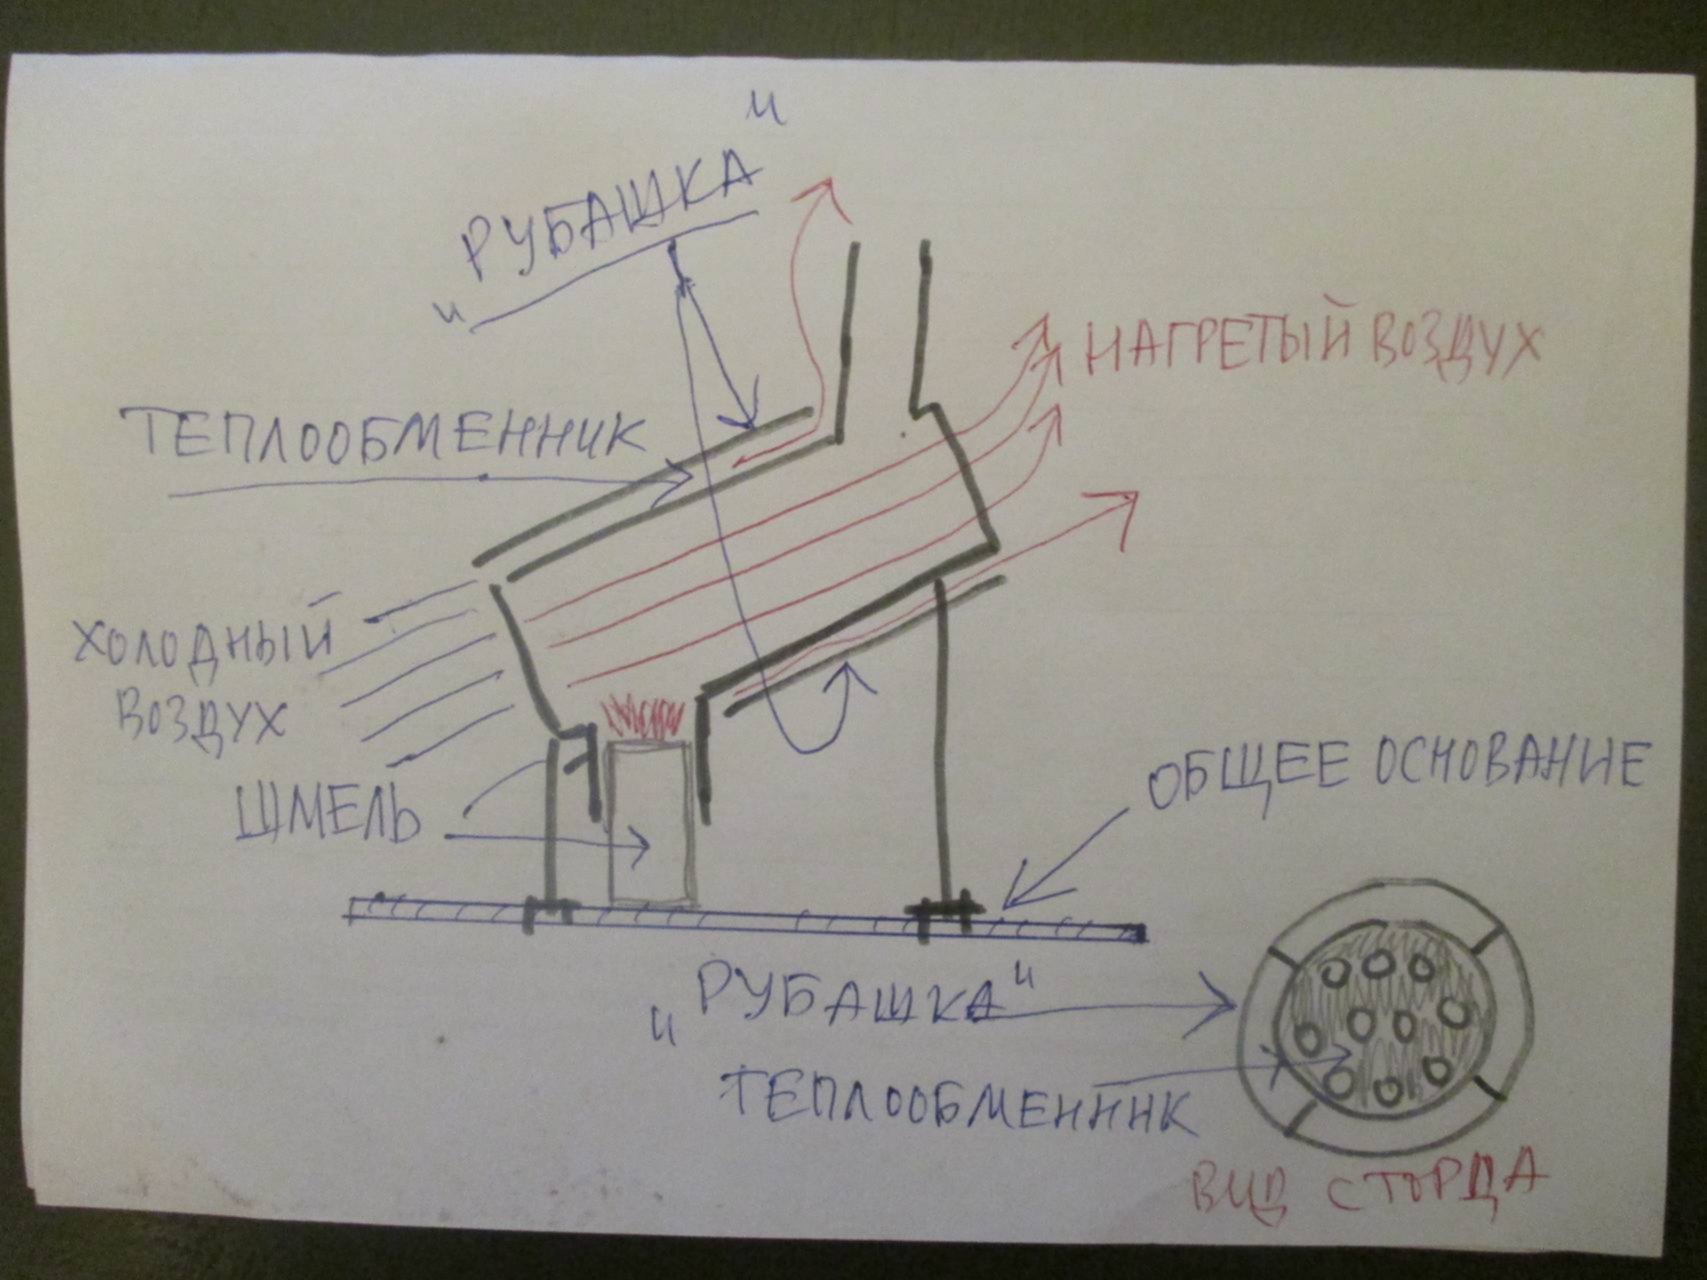 "РУБАШКА"
НАГРЕТЫЙ ВОЗДУХ
ТЕПЛООБМЕННИК
ХОЛОДНЫЙ
ВОЗДУХ
ШМЕЛЬ
ОБЩЕЕ ОСНОВАНИЕ
"РУБАШКА"
ТЕПЛООБМЕННИК
ВИД С ТОРДА